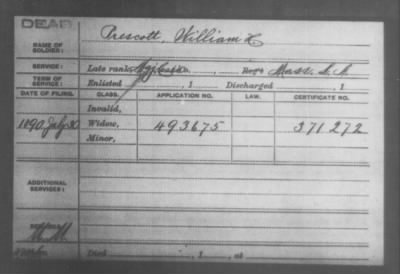 DEAD.
NAME OF SOLDIER: Prescott, William H
SERVICE: Late rank, , Reg't Mass. S. A.
TERM OF SERVICE: Enlisted , 1 Discharged , 1
DATE OF FILING. CLASS. APPLICATION NO. LAW. CERTIFICATE NO.
Invalid,
1890 July 30 Widow, 493675 371272
Minor,
ADDITIONAL SERVICES:
Died , 1 , at